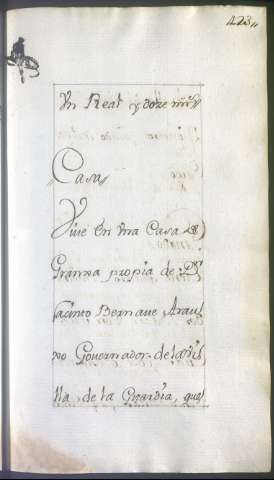 423„
Un Real y doze mrs
Casa
Vive en una Casa de
Granna propia de Dn
Jacinto Bernave Arau
no Governador de la Vi
lla de la Guardia, que